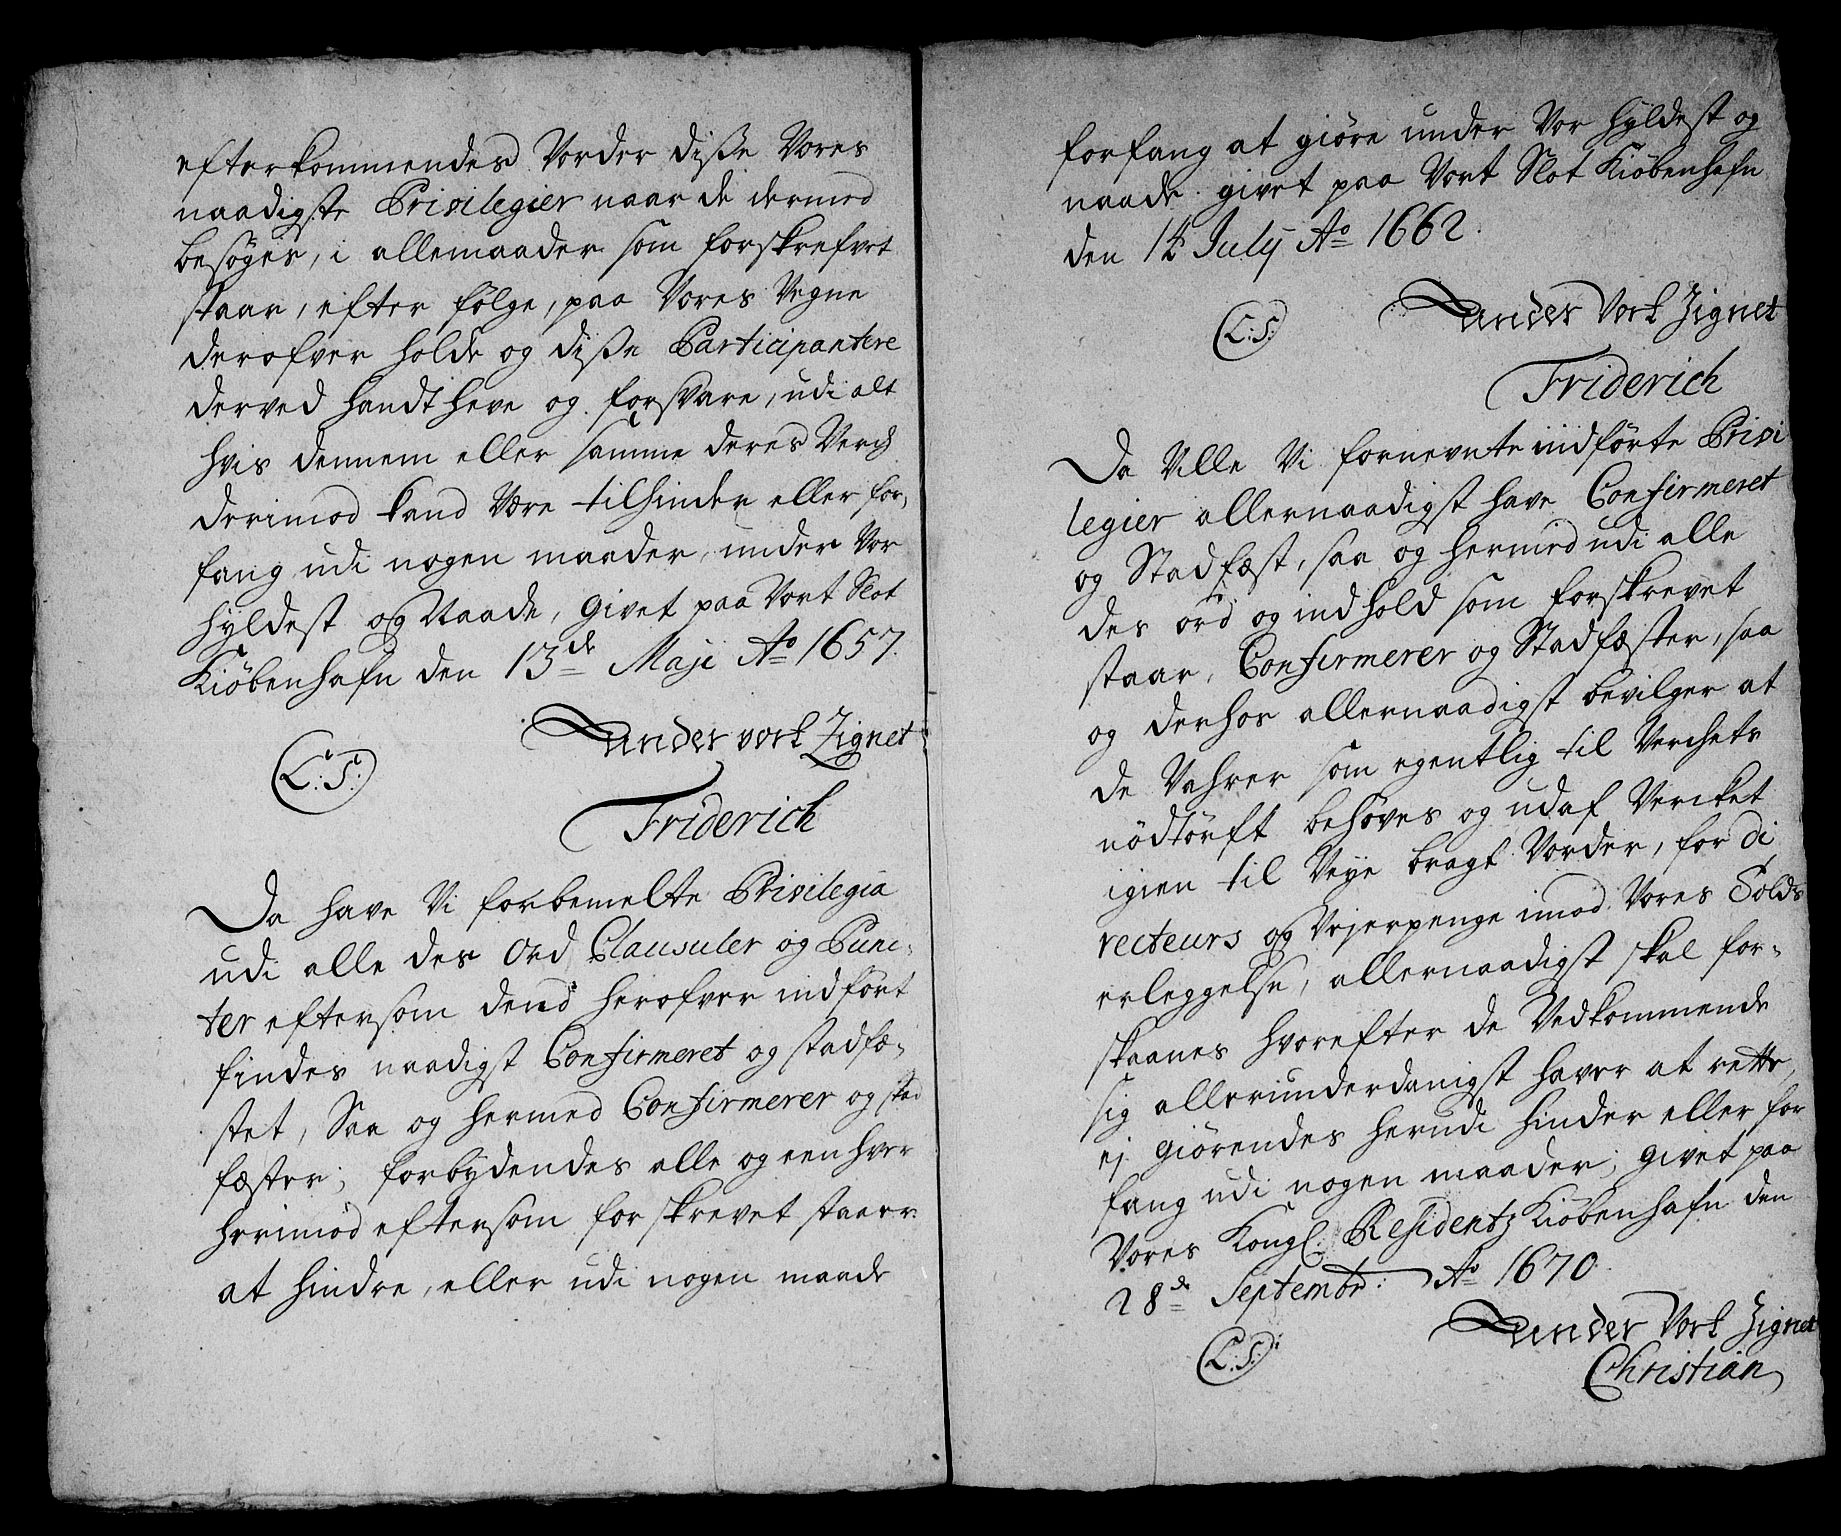 efterkommendes Vorder disse Vores
naadigste Privilegier naar de dermed
besøges, i allemaader som forskrefvet
staar, efter følge, paa Vores Vegne
derofver holde og disse Participantere
derved handthæve og forsvare, udi alt
hvis dennem eller samme deres Verch
derimod kand Være tilhinder eller for,
fang udi nogen maader, under Vor
hyldest og Naade, givet paa Vort Slot
Kiøbenhafn den 13de Maji Ao 1657.
L.S. Under vort Zignet
Friderich
Da have Vi forbemelte Privilegia
udi alle des Ord Clausuler og Punc-
ter eftersom dend herofver indført
findes naadigst Confirmeret og stadfæ-
stet, Saa og hermed Confirmerer og stad
fæster; forbydendes alle og een hver
herimod eftersom forskrevet staaer
at hindre, eller udi nogen maade
forfang at giøre under Vor hyldest og
naade. givet paa Vort Slot Kiøbenhafn
den 14 July Ao 1662.
L.S. Under Vort Zignet
Friderich
Da Ville Vi fornevnte indførte Privi
legier allernaadigst have Confirmeret
og Stadfæst, saa og hermed udi alle
des ord og indhold som forskrevet
staar, Confirmerer og Stadfæster, saa
og derhos allernaadigst bevilger at
de Vahrer som egentlig til Verchets
nødtørft behøves og udaf Vercket
igien til Veye bragt Vorder, for Di
recteurs og Vejerpenge imod Vores Tolds
erleggelse, allernaadigst skal for-
skaanes hvorefter de Vedkommende
sig allerunderdanigst haver at rette,
ej giørendes herudi hinder eller for
fang udi nogen maader; givet paa
Vores Kongl. Residentz Kiøbenhafn den
28de Septembr: Ao 1670.
L.S. Under Vort Zignet
Christian